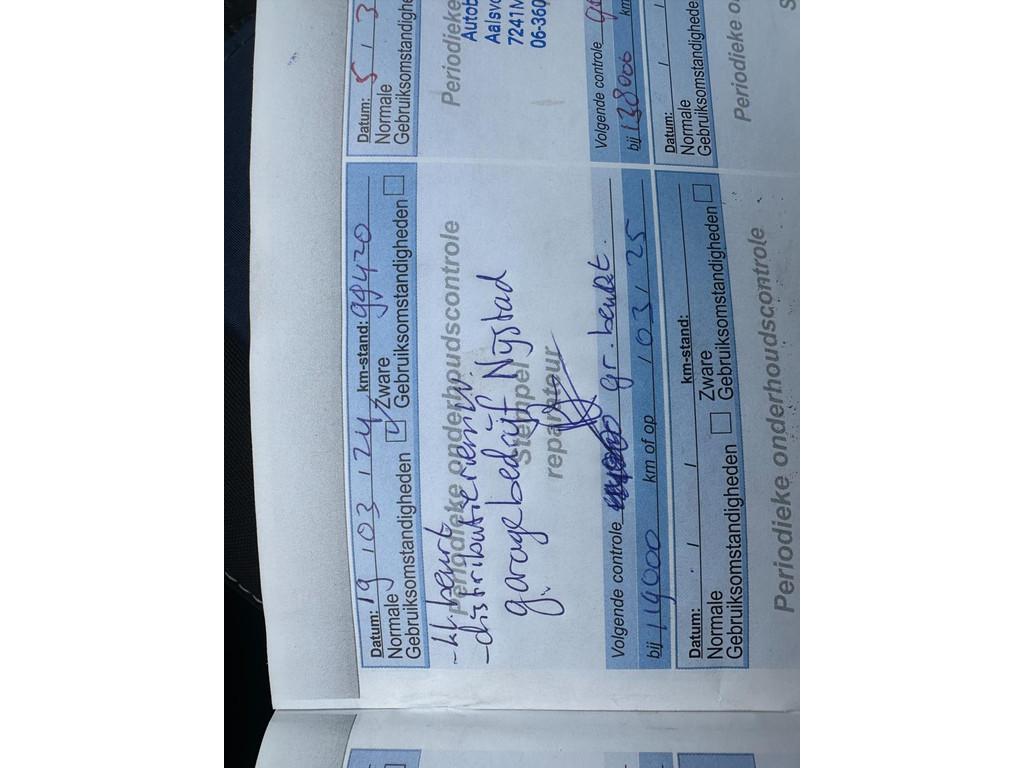 Datum: 19 / 03 / 24 km-stand: 99420
Normale Gebruiksomstandigheden
Zware Gebruiksomstandigheden
Periodieke onderhoudscontrole
Stempel
reparateur
- kl. beurt
- distributieriem
garagebedrijf Nijstad
Volgende controle gr. beurt.
bij 119000 km of op / 03 / 25
Datum: / / km-stand:
Normale Gebruiksomstandigheden
Zware Gebruiksomstandigheden
Periodieke onderhoudscontrole
Datum: 5 / 3
Normale
Gebruiksomstandighe
Periodieke
Autob
Aalsvo
7241M
06-360
Volgende controle
bij 138000 km
Datum: / /
Normale
Gebruiksomstandighede
Periodieke o